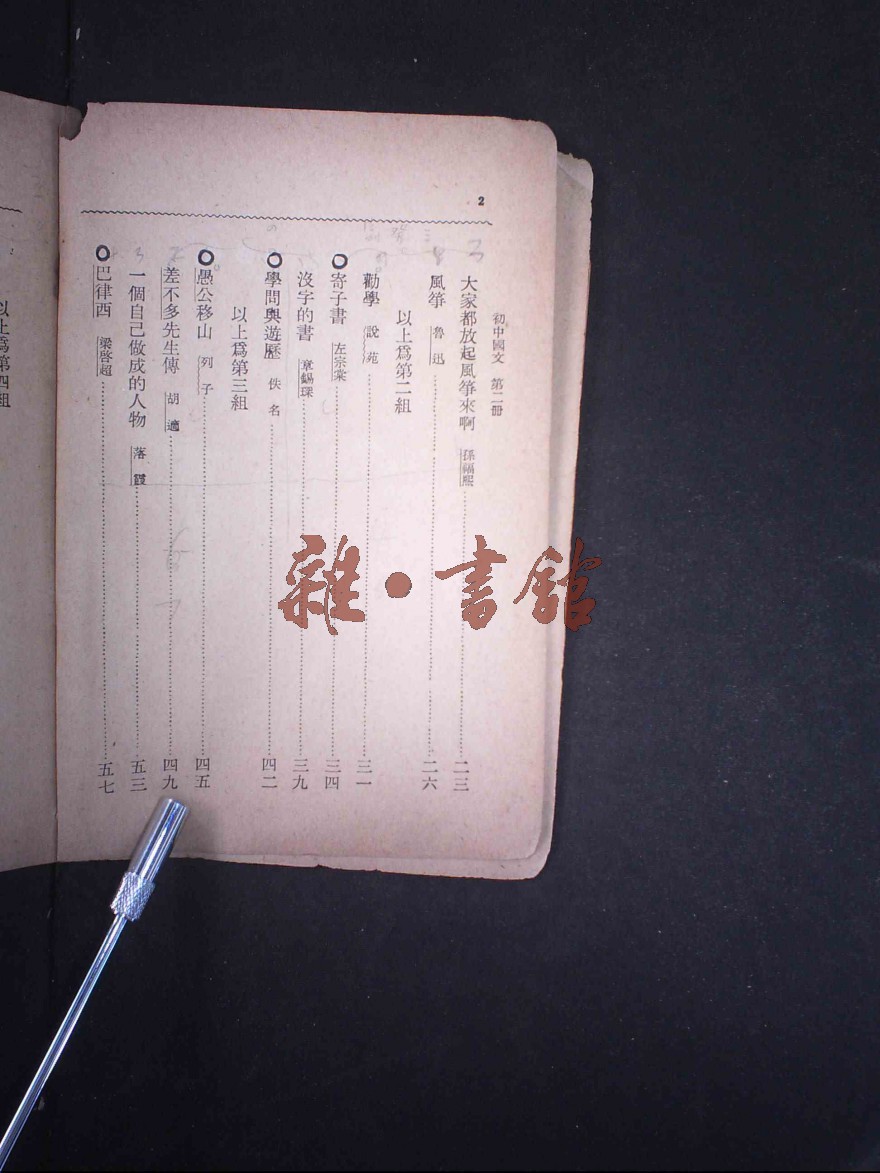 2
初中國文 第二冊
大家都放起風箏來啊 孫福熙……二三
風箏 魯迅……二六
以上爲第二組
勸學 說苑……三一
寄子書 左宗棠……三四
沒字的書 章錫琛……三九
學問與遊歷 佚名……四二
以上爲第三組
愚公移山 列子……四五
差不多先生傳 胡適……四九
一個自己做成的人物 落霞……五三
巴律西 梁啓超……五七
以上爲第四組
雜·書館